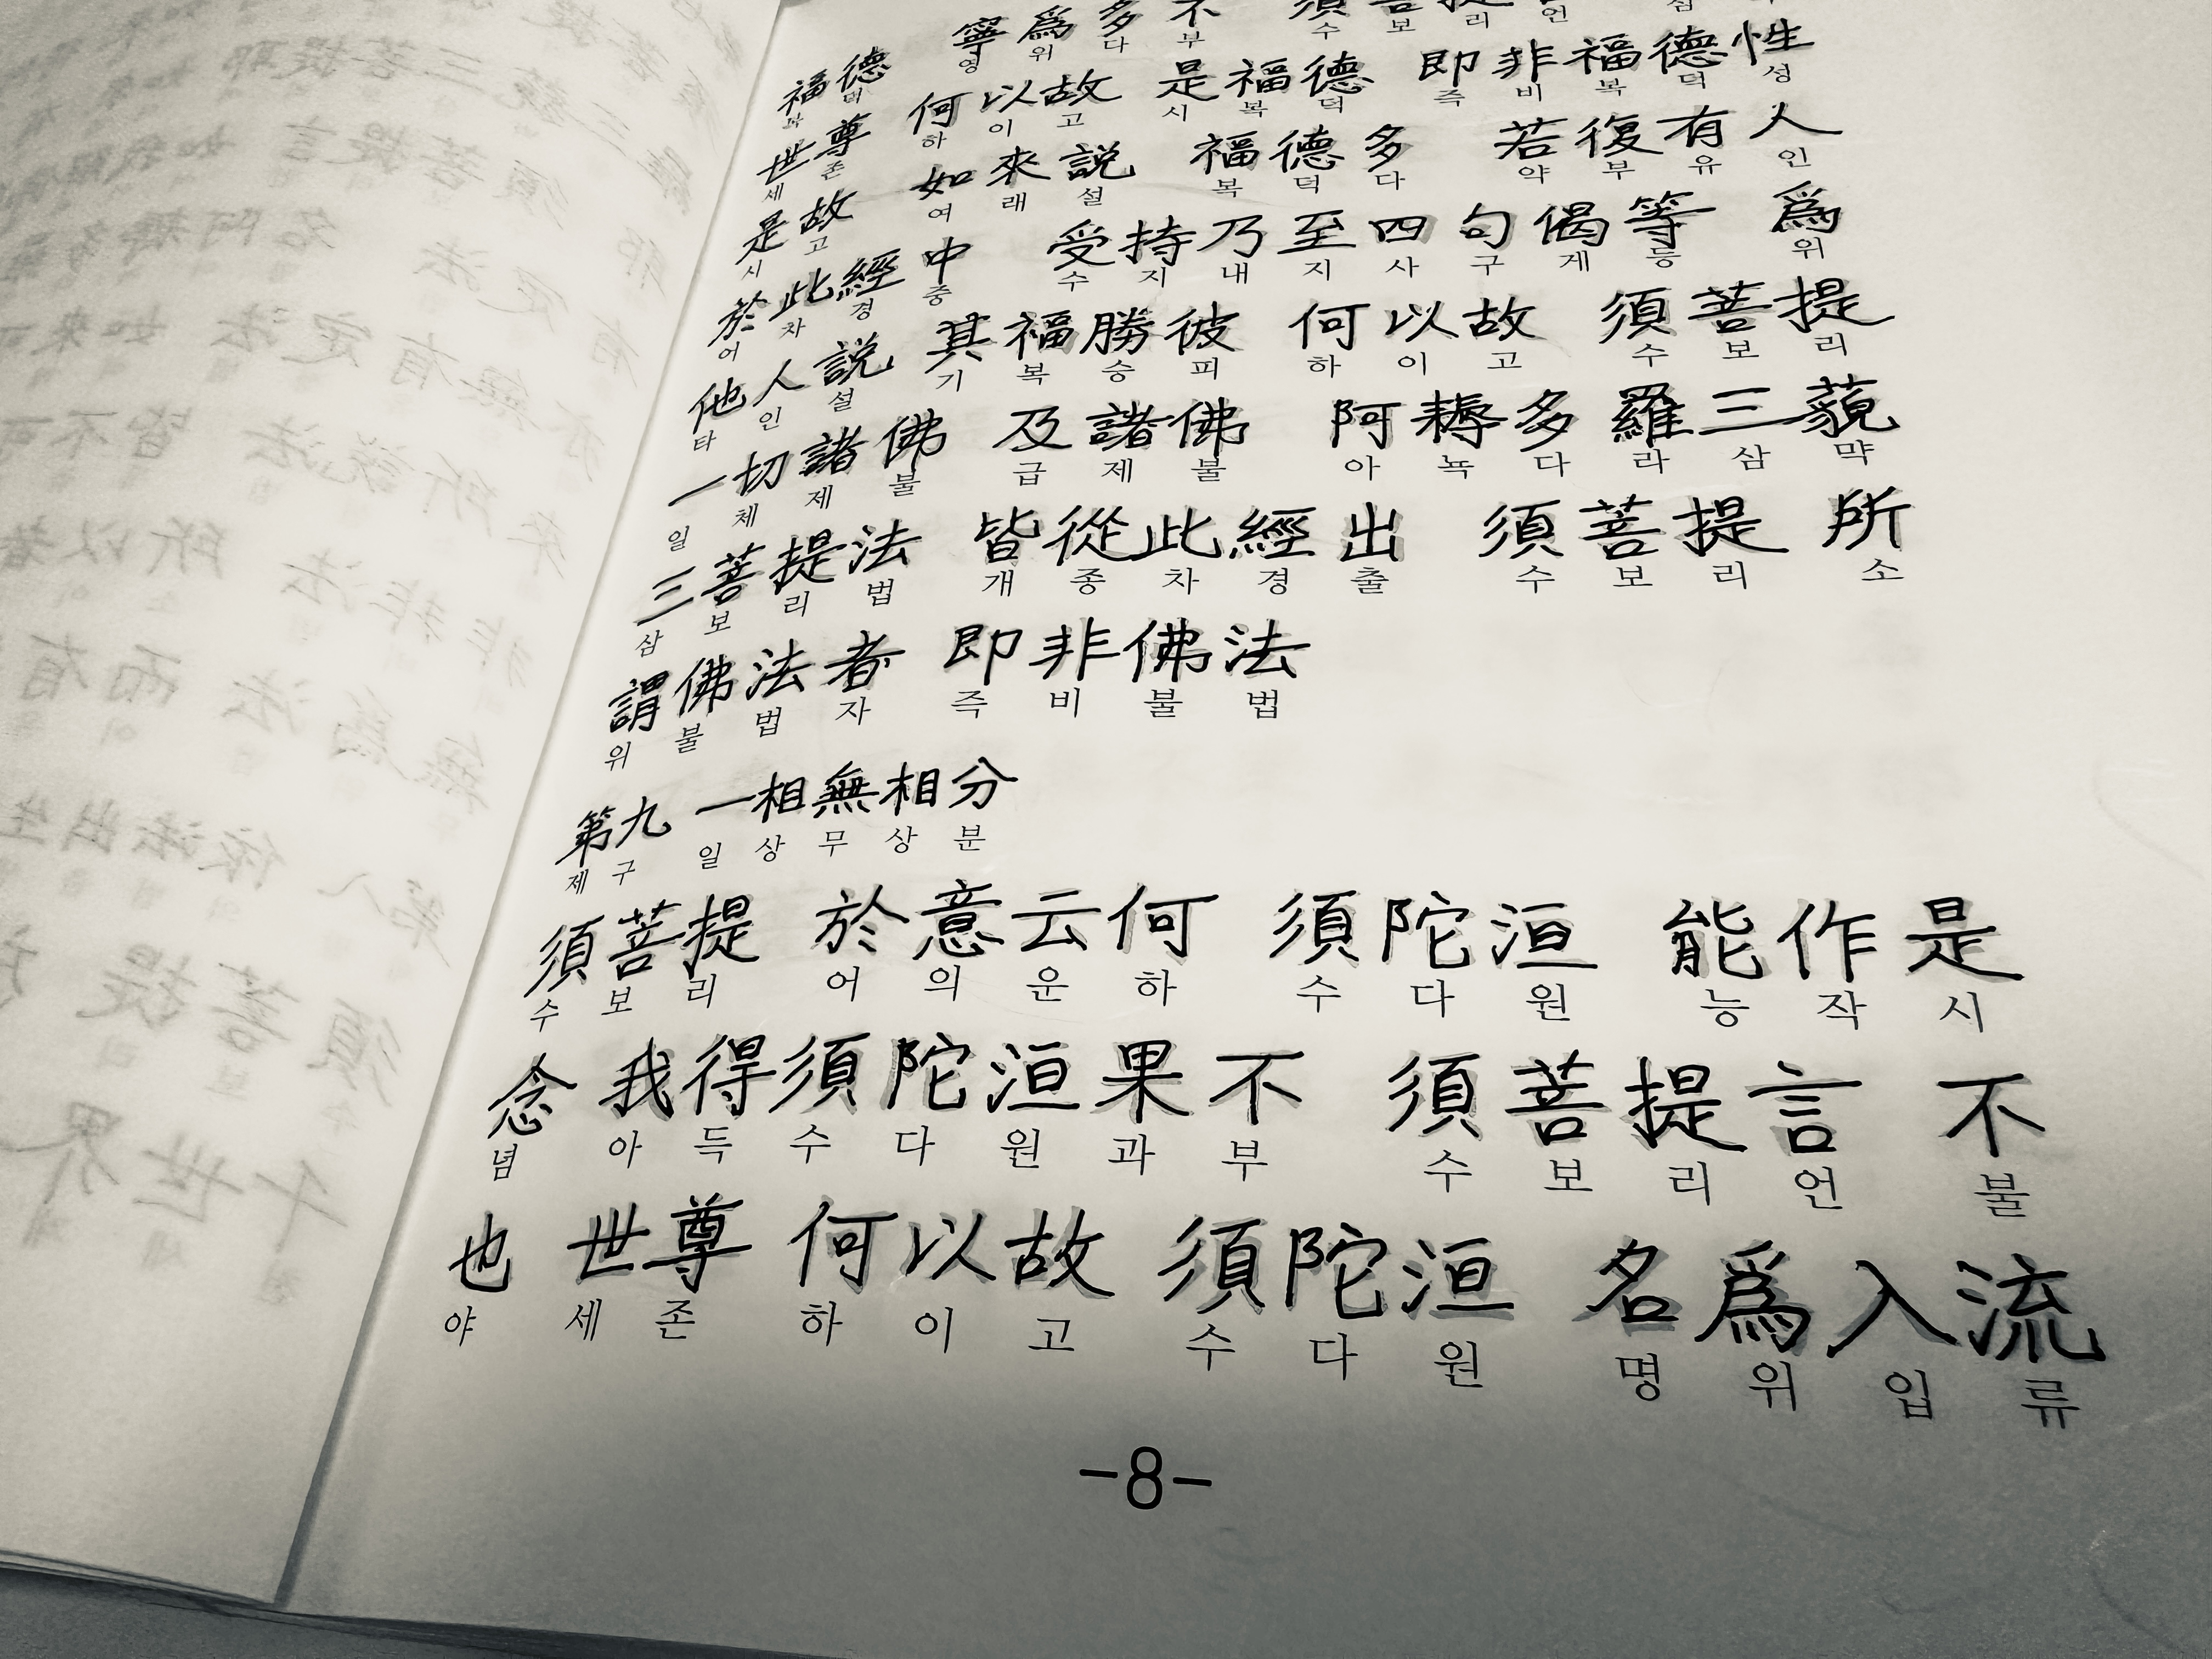 寧爲多不 須菩提言
영 위 다 부 수 보 리 언
福德 何以故 是福德 即非福德性
복 덕 하 이 고 시 복 덕 즉 비 복 덕 성
世尊 如來說 福德多 若復有人
세 존 여 래 설 복 덕 다 약 부 유 인
是故
시 고
於此經中 受持乃至四句偈等 爲
어 차 경 중 수 지 내 지 사 구 게 등 위
他人說 其福勝彼 何以故 須菩提
타 인 설 기 복 승 피 하 이 고 수 보 리
一切諸佛 及諸佛 阿耨多羅三藐
일 체 제 불 급 제 불 아 뇩 다 라 삼 먁
三菩提法 皆從此經出 須菩提 所
삼 보 리 법 개 종 차 경 출 수 보 리 소
謂佛法者 即非佛法
위 불 법 자 즉 비 불 법
第九 一相無相分
제 구 일 상 무 상 분
須菩提 於意云何 須陀洹 能作是
수 보 리 어 의 운 하 수 다 원 능 작 시
念 我得須陀洹果不 須菩提言 不
념 아 득 수 다 원 과 부 수 보 리 언 불
也 世尊 何以故 須陀洹 名爲入流
야 세 존 하 이 고 수 다 원 명 위 입 류
-8-